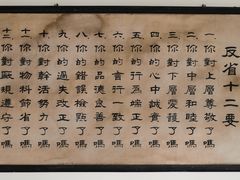 反省十二要
一你對上層尊敬了嗎
二你對中層和睦了嗎
三你對下層愛護了嗎
四你的心中誠實了嗎
五你的行為端正了嗎
六你的言行一致了嗎
七你的品德良善了嗎
八你的錯誤檢點了嗎
九你的過失改正了嗎
十你對幹活努力了嗎
十一你對物料節省了嗎
十二你對廠規遵守了嗎